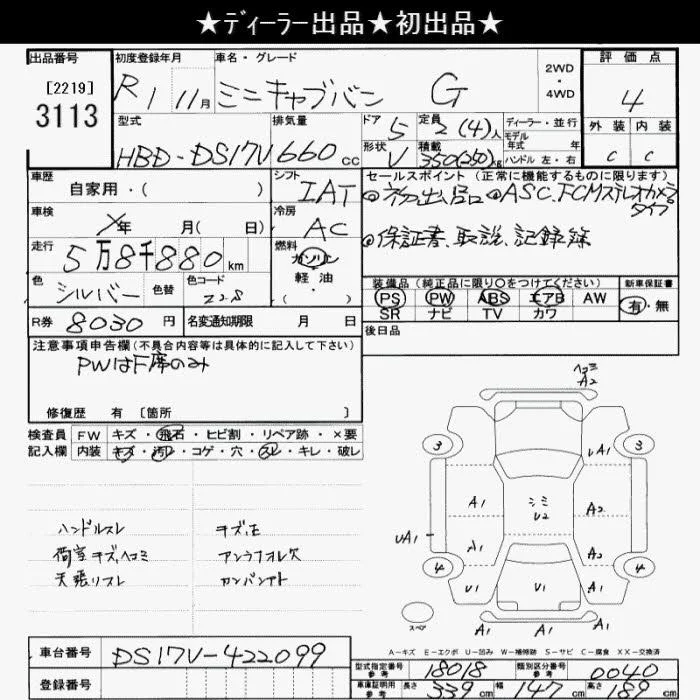 ★ディーラー出品★初出品★
出品番号 初度登録年月 車名・グレード 評価点
[2219] R1 11月 ミニキャブバン G 2WD・4WD 4
3113
型式 排気量 ドア 5 定員 2(4)人 ディーラー・並行 外装 内装
HBD-DS17V 660cc 形状 V 積載 350(250)kg モデル年式 年 C C
ハンドル 左・右
車歴 シフト セールスポイント(正常に機能するものに限ります)
自家用・( ) IAT ◎初出品 ◎ASC.FCMステレオカメラタイプ
車検 冷房
年 月( 日) AC ◎保証書、取説、記録簿
走行 燃料
5万8千880km ガソリン
色 色替 色コード 軽油 装備品(純正品に限り○をつけてください) 新車保証書
シルバー ・( ) PS PW ABS エアB AW 有・無
SR ナビ TV カワ
R券 8030円 名変通知期限 月 日 後日品
注意事項申告欄(不具合内容等は具体的に記入して下さい)
PWはF席のみ
修復歴 有 [箇所 ]
検査員 FW キズ・飛石・ヒビ割・リペア跡・×要
記入欄 内装 キズ・汚レ・コゲ・穴・スレ・キレ・破レ
ハンドルスレ
荷室キズ、ヘコミ
天張リスレ
アンダフォレ欠
カンバンアト
ヘコミ
A2
3 A1 3
A1 ミミ A2
U2
UA1 A1 A2
4 4
U1 U1 A1
スペア A1 A1
A-キズ E-エクボ U-凹み W-補修跡 S-サビ C-腐食 XX-交換済
車台番号 DS17V-422099
登録番号
型式指定番号 参考 18018 類別区分番号 参考 0040
車庫証明用 参考 長さ 339cm 幅 147cm 高さ 189cm